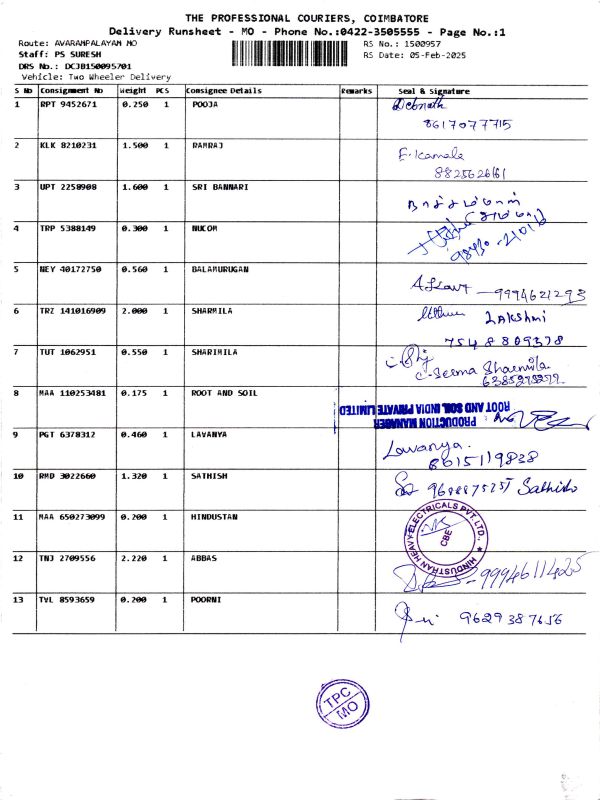 THE PROFESSIONAL COURIERS, COIMBATORE
Delivery Runsheet - MO - Phone No.:0422-3505555 - Page No.:1
Route: AVARAMPALAYAM MO RS No.: 1500957
Staff: PS SURESH RS Date: 05-Feb-2025
DRS No.: DCJB150095701
Vehicle: Two Wheeler Delivery
S No Consignment No Weight PCS Consignee Details Remarks Seal & Signature
1 RPT 9452671 0.250 1 POOJA Debnath
8617077715
2 KLK 8210231 1.500 1 RAMRAJ E. Kamala
8825626161
3 UPT 2258908 1.600 1 SRI BANNARI
4 TRP 5388149 0.300 1 NUCOM
5 NEY 40172750 0.560 1 BALAMURUGAN 9994621293
6 TRZ 141016909 2.000 1 SHARMILA LAKshmi
7548809378
7 TUT 1062951 0.550 1 SHARIMILA C. Seema Sharmila
8 MAA 110253481 0.175 1 ROOT AND SOIL
ROOT AND SOIL INDIA PRIVATE LIMITED
PRODUCTION MANAGER
9 PGT 6378312 0.460 1 LAVANYA Lavanya.
8015119838
10 RMD 3022660 1.320 1 SATHISH 9688875257 Sathish
11 MAA 650273099 0.200 1 HINDUSTAN
HINDUSTRAN HEAVY ELECTRICALS PVT. LTD.,
CBE
12 TNJ 2709556 2.220 1 ABBAS - 9994611425
13 TVL 8593659 0.200 1 POORNI 9629387656
TPC
MO